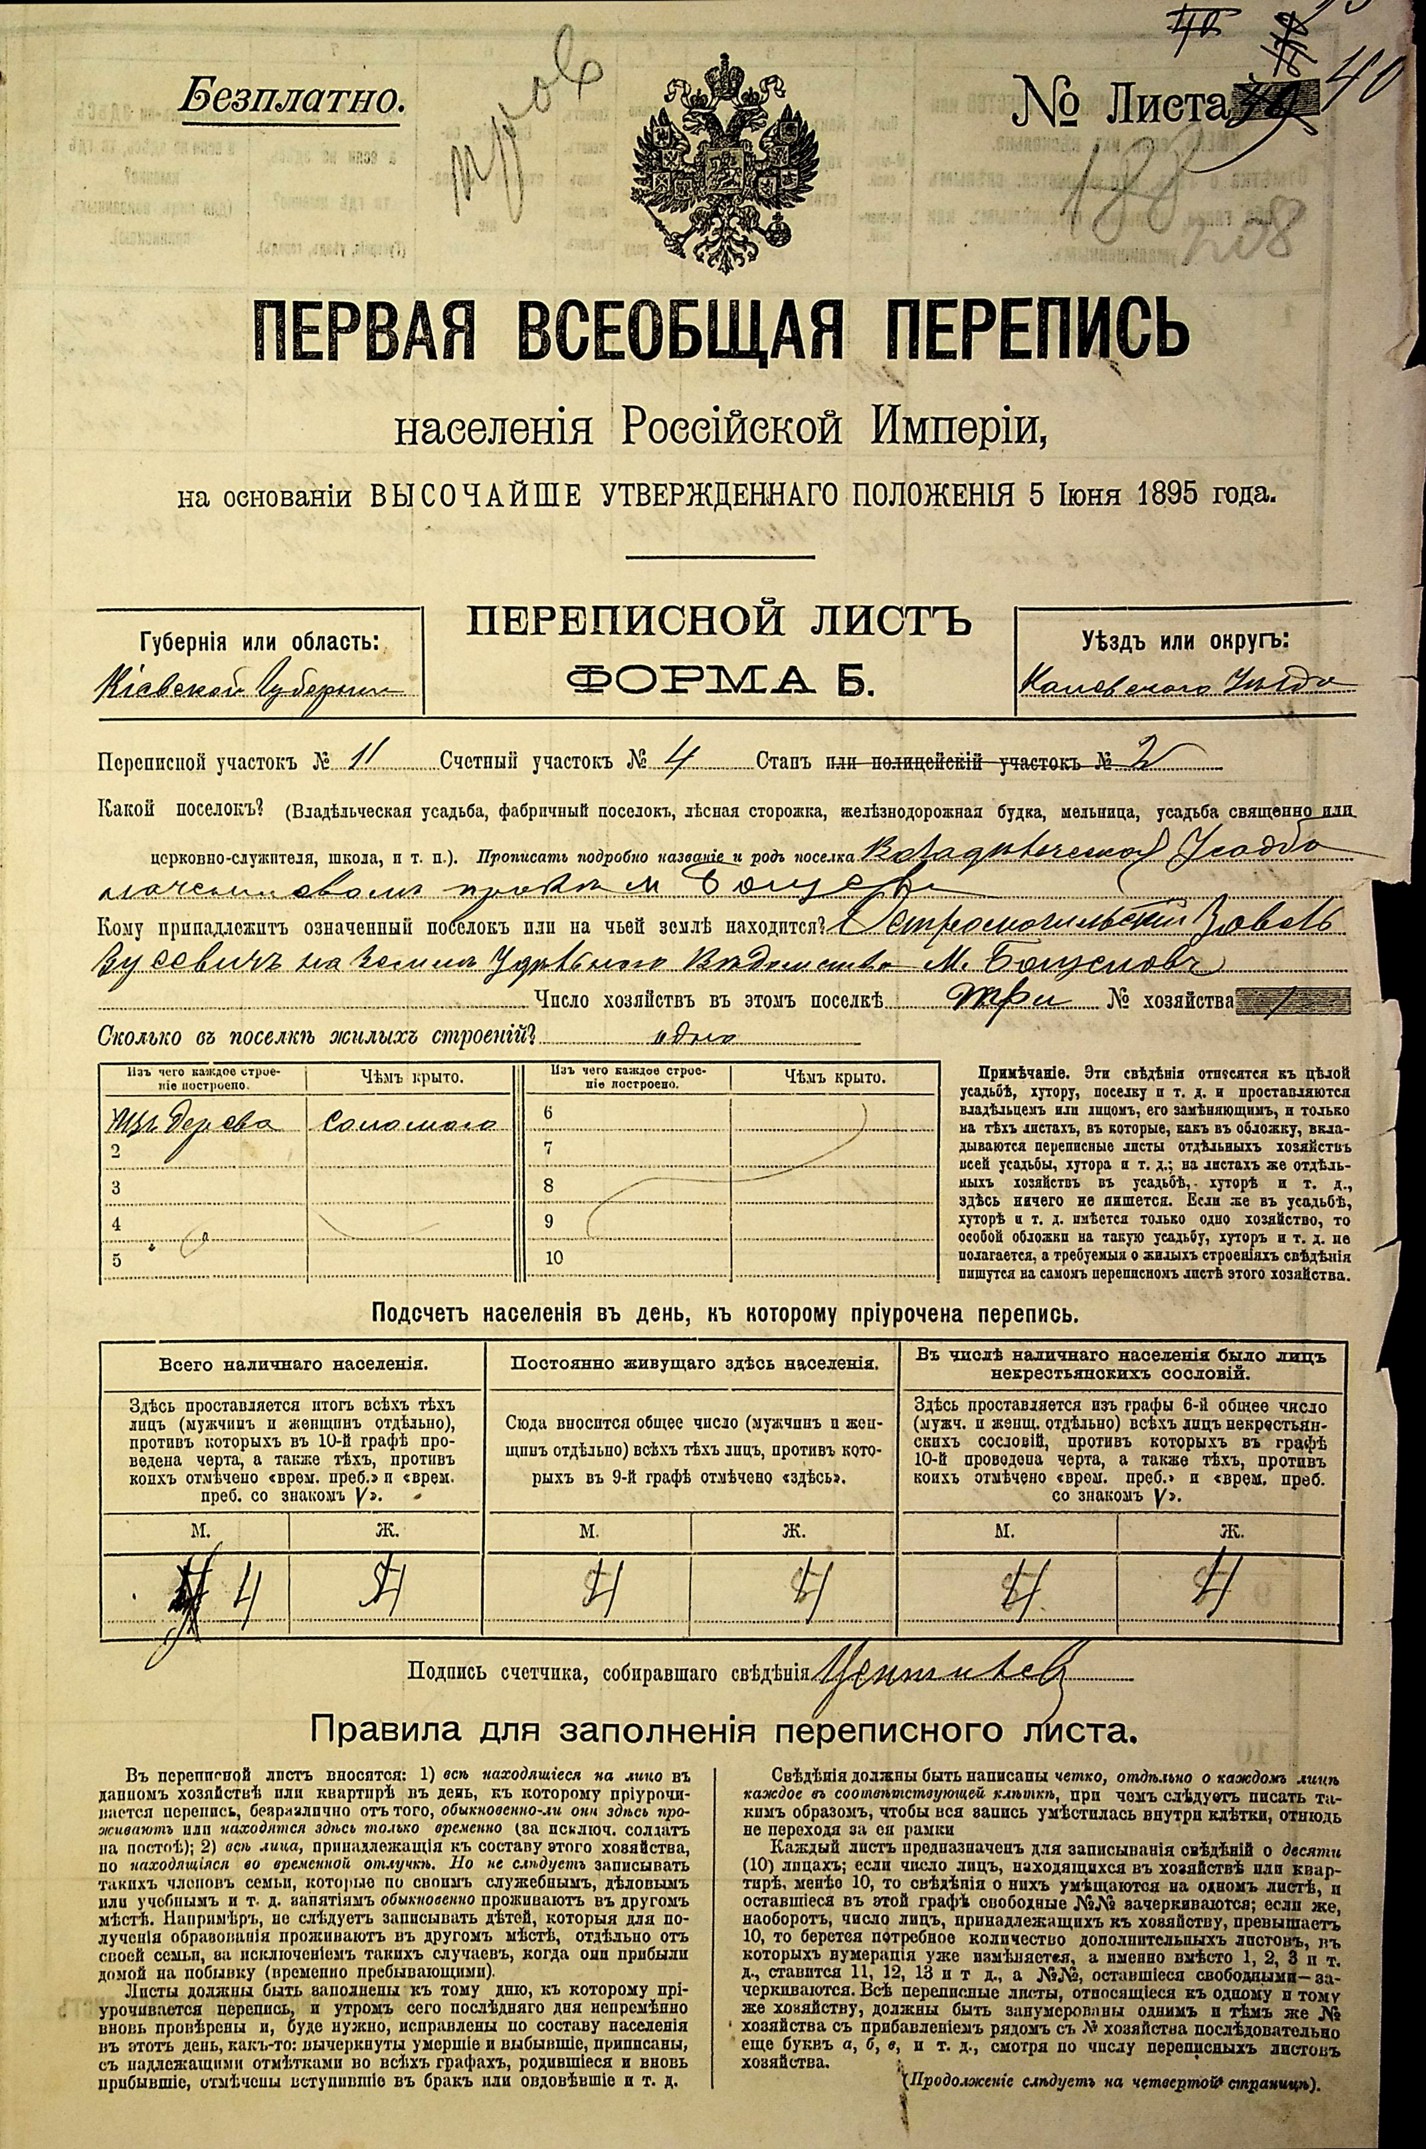 Безплатно.
пров
№ Листа 40
188
208
ПЕРВАЯ ВСЕОБЩАЯ ПЕРЕПИСЬ
населенія Россійской Имперіи,
на основаніи ВЫСОЧАЙШЕ УТВЕРЖДЕННАГО ПОЛОЖЕНІЯ 5 Іюня 1895 года.
ПЕРЕПИСНОЙ ЛИСТЪ
ФОРМА Б.
Губернія или область:
Кіевской Губерніи
Уѣздъ или округъ:
Каневскаго Уѣзда
Переписной участокъ № 11 Счетный участокъ № 4 Станъ или полицейскій участокъ № 2
Какой поселокъ? (Владѣльческая усадьба, фабричный поселокъ, лѣсная сторожка, желѣзнодорожная будка, мельница, усадьба священно или
церковно-служителя, школа, и т. п.). Прописать подробно названіе и родъ поселка Владѣльческая Усадба
м.
Кому принадлежитъ означенный поселокъ или на чьей землѣ находится?
на Земли Удѣльного Вѣдомства М. Богуславъ
Число хозяйствъ въ этомъ поселкѣ три № хозяйства 1
Сколько въ поселкѣ жилыхъ строеній? одно
Изъ чего каждое строе-
ніе построено. Чѣмъ крыто. Изъ чего каждое строе-
ніе построено. Чѣмъ крыто.
Изъ дерева соломого 6
2 7
3 8
4 9
5 10
Примѣчаніе. Эти свѣдѣнія относятся къ цѣлой
усадьбѣ, хутору, поселку и т. д. и проставляются
владѣльцемъ или лицомъ, его замѣняющимъ, и только
на тѣхъ листахъ, въ которые, какъ въ обложку, вкла-
дываются переписные листы отдѣльныхъ хозяйствъ
всей усадьбы, хутора и т. д.; на листахъ же отдѣль-
ныхъ хозяйствъ въ усадьбѣ, хуторѣ и т. д.,
здѣсь ничего не пишется. Если же въ усадьбѣ,
хуторѣ и т. д. имѣется только одно хозяйство, то
особой обложки на такую усадьбу, хуторъ и т. д. не
полагается, а требуемыя о жилыхъ строеніяхъ свѣдѣнія
пишутся на самомъ переписномъ листѣ этого хозяйства.
Подсчетъ населенія въ день, къ которому пріурочена перепись.
Всего наличнаго населенія.
Здѣсь проставляется итогъ всѣхъ тѣхъ
лицъ (мужчинъ и женщинъ отдѣльно),
противъ которыхъ въ 10-й графѣ про-
ведена черта, а также тѣхъ, противъ
коихъ отмѣчено «врем. преб.» и «врем.
преб. со знакомъ V».
Постоянно живущаго здѣсь населенія.
Сюда вносится общее число (мужчинъ и жен-
щинъ отдѣльно) всѣхъ тѣхъ лицъ, противъ кото-
рыхъ въ 9-й графѣ отмѣчено «здѣсь».
Въ числѣ наличнаго населенія было лицъ
некрестьянскихъ сословій.
Здѣсь проставляется изъ графы 6-й общее число
(мужч. и женщ. отдѣльно) всѣхъ лицъ некрестьян-
скихъ сословій, противъ которыхъ въ графѣ
10-й проведена черта, а также тѣхъ, противъ
коихъ отмѣчено «врем. преб.» и «врем. преб.
со знакомъ V».
М. Ж. М. Ж. М. Ж.
4 4 4 4 4 4
Подпись счетчика, собиравшаго свѣдѣнія
Правила для заполненія переписного листа.
Въ переписной листъ вносятся: 1) всѣ находящіеся на лицо въ
данномъ хозяйствѣ или квартирѣ въ день, къ которому пріурочи-
вается перепись, безразлично отъ того, обыкновенно-ли они здѣсь про-
живаютъ или находятся здѣсь только временно (за исключ. солдатъ
на постоѣ); 2) всѣ лица, принадлежащія къ составу этого хозяйства,
но находящіяся во временной отлучкѣ. Но не слѣдуетъ записывать
такихъ членовъ семьи, которые по своимъ служебнымъ, дѣловымъ
или учебнымъ и т. д. занятіямъ обыкновенно проживаютъ въ другомъ
мѣстѣ. Напримѣръ, не слѣдуетъ записывать дѣтей, которыя для по-
лученія образованія проживаютъ въ другомъ мѣстѣ, отдѣльно отъ
своей семьи, за исключеніемъ такихъ случаевъ, когда они прибыли
домой на побывку (временно пребывающими).
Листы должны быть заполнены къ тому дню, къ которому прі-
урочивается перепись, и утромъ сего послѣдняго дня непремѣнно
вновь провѣрены и, буде нужно, исправлены по составу населенія
въ этотъ день, какъ-то: вычеркнуты умершіе и выбывшіе, приписаны,
съ надлежащими отмѣтками во всѣхъ графахъ, родившіеся и вновь
прибывшіе, отмѣчены вступившіе въ бракъ или овдовѣвшіе и т. д.
Свѣдѣнія должны быть написаны четко, отдѣльно о каждомъ лицѣ
каждое въ соотвѣтствующей клѣткѣ, при чемъ слѣдуетъ писать та-
кимъ образомъ, чтобы вся запись умѣстилась внутри клѣтки, отнюдь
не переходя за ея рамки
Каждый листъ предназначенъ для записыванія свѣдѣній о десяти
(10) лицахъ; если число лицъ, находящихся въ хозяйствѣ или квар-
тирѣ, менѣе 10, то свѣдѣнія о нихъ умѣщаются на одномъ листѣ, и
оставшіеся въ этой графѣ свободные №№ зачеркиваются; если же,
наоборотъ, число лицъ, принадлежащихъ къ хозяйству, превышаетъ
10, то берется потребное количество дополнительныхъ листовъ, въ
которыхъ нумерація уже измѣняется, а именно вмѣсто 1, 2, 3 и т.
д., ставится 11, 12, 13 и т д., а №№, оставшіеся свободными—за-
черкиваются. Всѣ переписные листы, относящіеся къ одному и тому
же хозяйству, должны быть занумерованы однимъ и тѣмъ же №
хозяйства съ прибавленіемъ рядомъ съ № хозяйства послѣдовательно
еще буквъ а, б, в, и т. д., смотря по числу переписныхъ листовъ
хозяйства.
(Продолженіе слѣдуетъ на четвертой страницѣ).